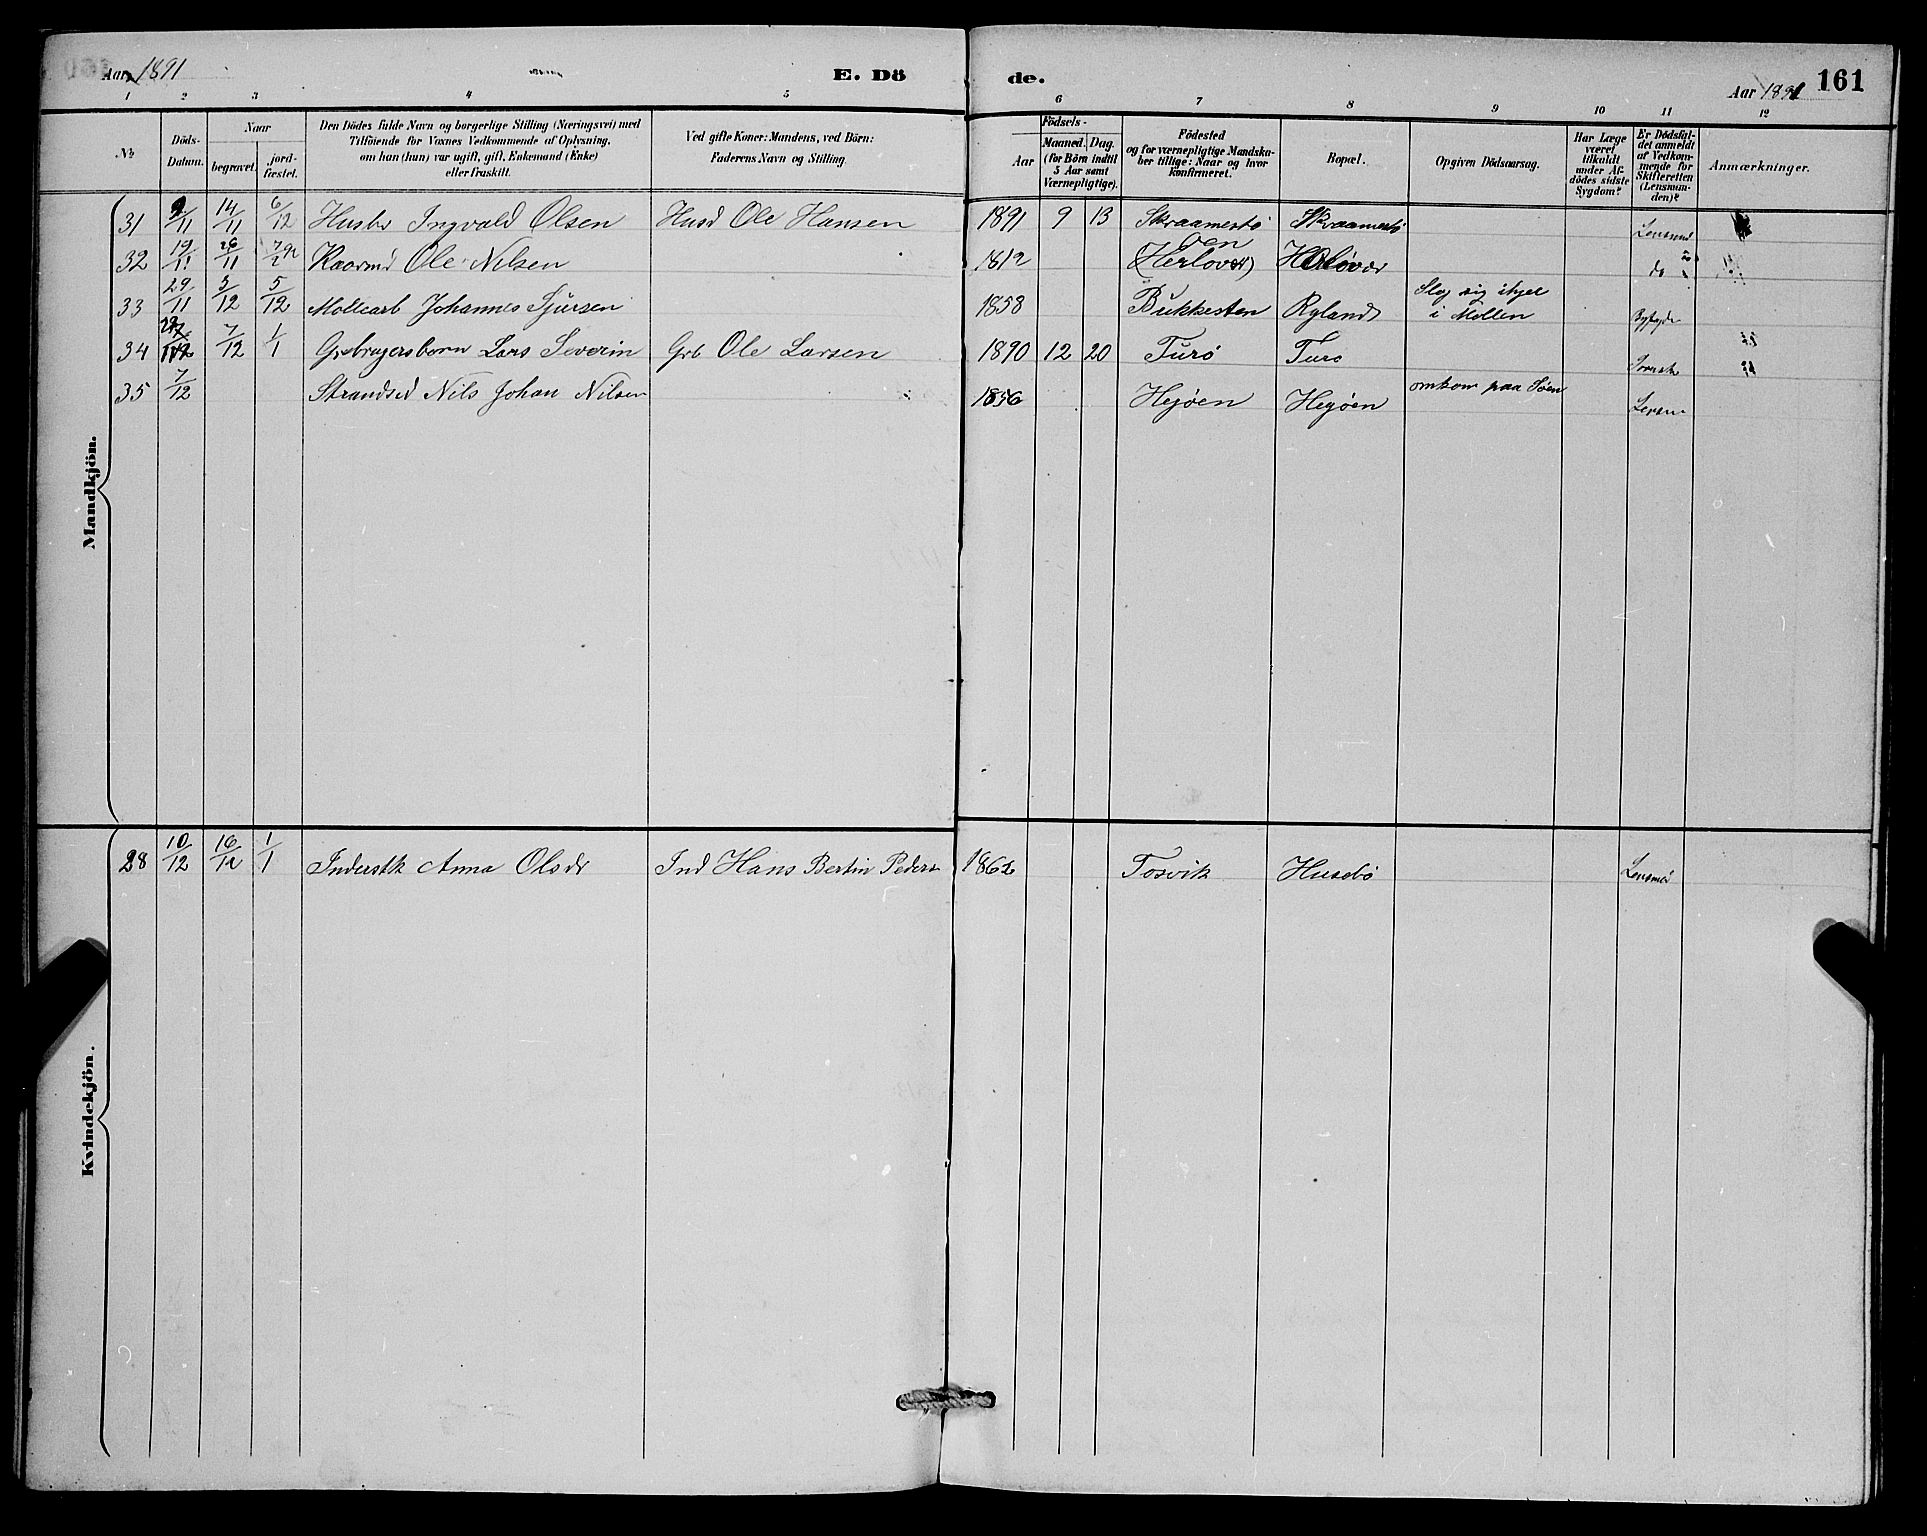 Aar 1891 E. Dö
de. Aar 1891 161
1 2 3 4 5
6 7 8 9 10 11 12
№ Döds-Datum. Naar begravet. jord-fæstet.
Den Dödes fulde Navn og borgerlige Stilling (Næringsvei) med
Tilföiende for Voxnes Vedkommende af Oplysning,
om han (hun) var ugift, gift, Enkemand (Enke)
eller fraskilt.
Ved gifte Koner: Mandens, ved Börn:
Faderens Navn og Stilling.
Födsels-
Aar Maaned. Dag.
(for Börn indtil
5 Aar samt
Værnepligtige).
Födested
og for værnepligtige Mandska-
ber tillige: Naar og hvor
konfirmeret.
Bopæl.
Opgiven Dödsaarsag.
Har Læge
været
tilkaldt
under Af-
dödes sidste
Sygdom?
Er Dödsfal-
det anmeldt
af Vedkom-
mende for
Skifteretten
(Lensman-
den)?
Anmærkninger.
Mandkjön.
31 9/11 14/11 6/12 Husbs Ingvald Olsen Husd Ole Hansen 1891 9 13 Skraamestö Skraamestö Lensmd
32 19/11 28/11 Kaarmd Ole Nilsen 1812 Herlover) Herløvær do
33 29/11 5/12 5/12 Mollearb Johannes Sjursen 1858 Bukkesten Rylands Slog sig ihjel
i Mollen
34 7/12 1/1 Grbrugersbarn Lars Severin Grb Ole Larsen 1890 12 20 Turö Turo
35 7/12 Strandsd Nils Johan Nilsen 1856 Hejöen Hejöen omkom paa Söen Lensm
Kvindekjön.
28 10/12 16/12 1/1 Inderstk Anna Olsdr Ind Hans Bertin Peders 1862 Tosvik Husebö Lensmd